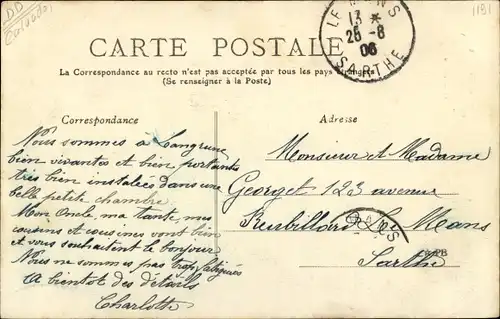 DD
Calvados
1191
LE MANS
13 *
25 -8
06
SARTHE
CARTE POSTALE
La Correspondance au recto n'est pas acceptée par tous les pays étrangers
(Se renseigner à la Poste)
Correspondance
Nous sommes à Langrune
bien vivantes et bien portantes
très bien instalées dans une
belle petite chambre.
Mon Oncle ma tante, mes
cousins et cousines vont bien
et vous souhaitent le bonjour
Nous ne sommes pas trop fatiguées
A bientôt des détails
Charlotte
Adresse
Monsieur et Madame
Georget 123 avenue
Le Mans
Sarthe